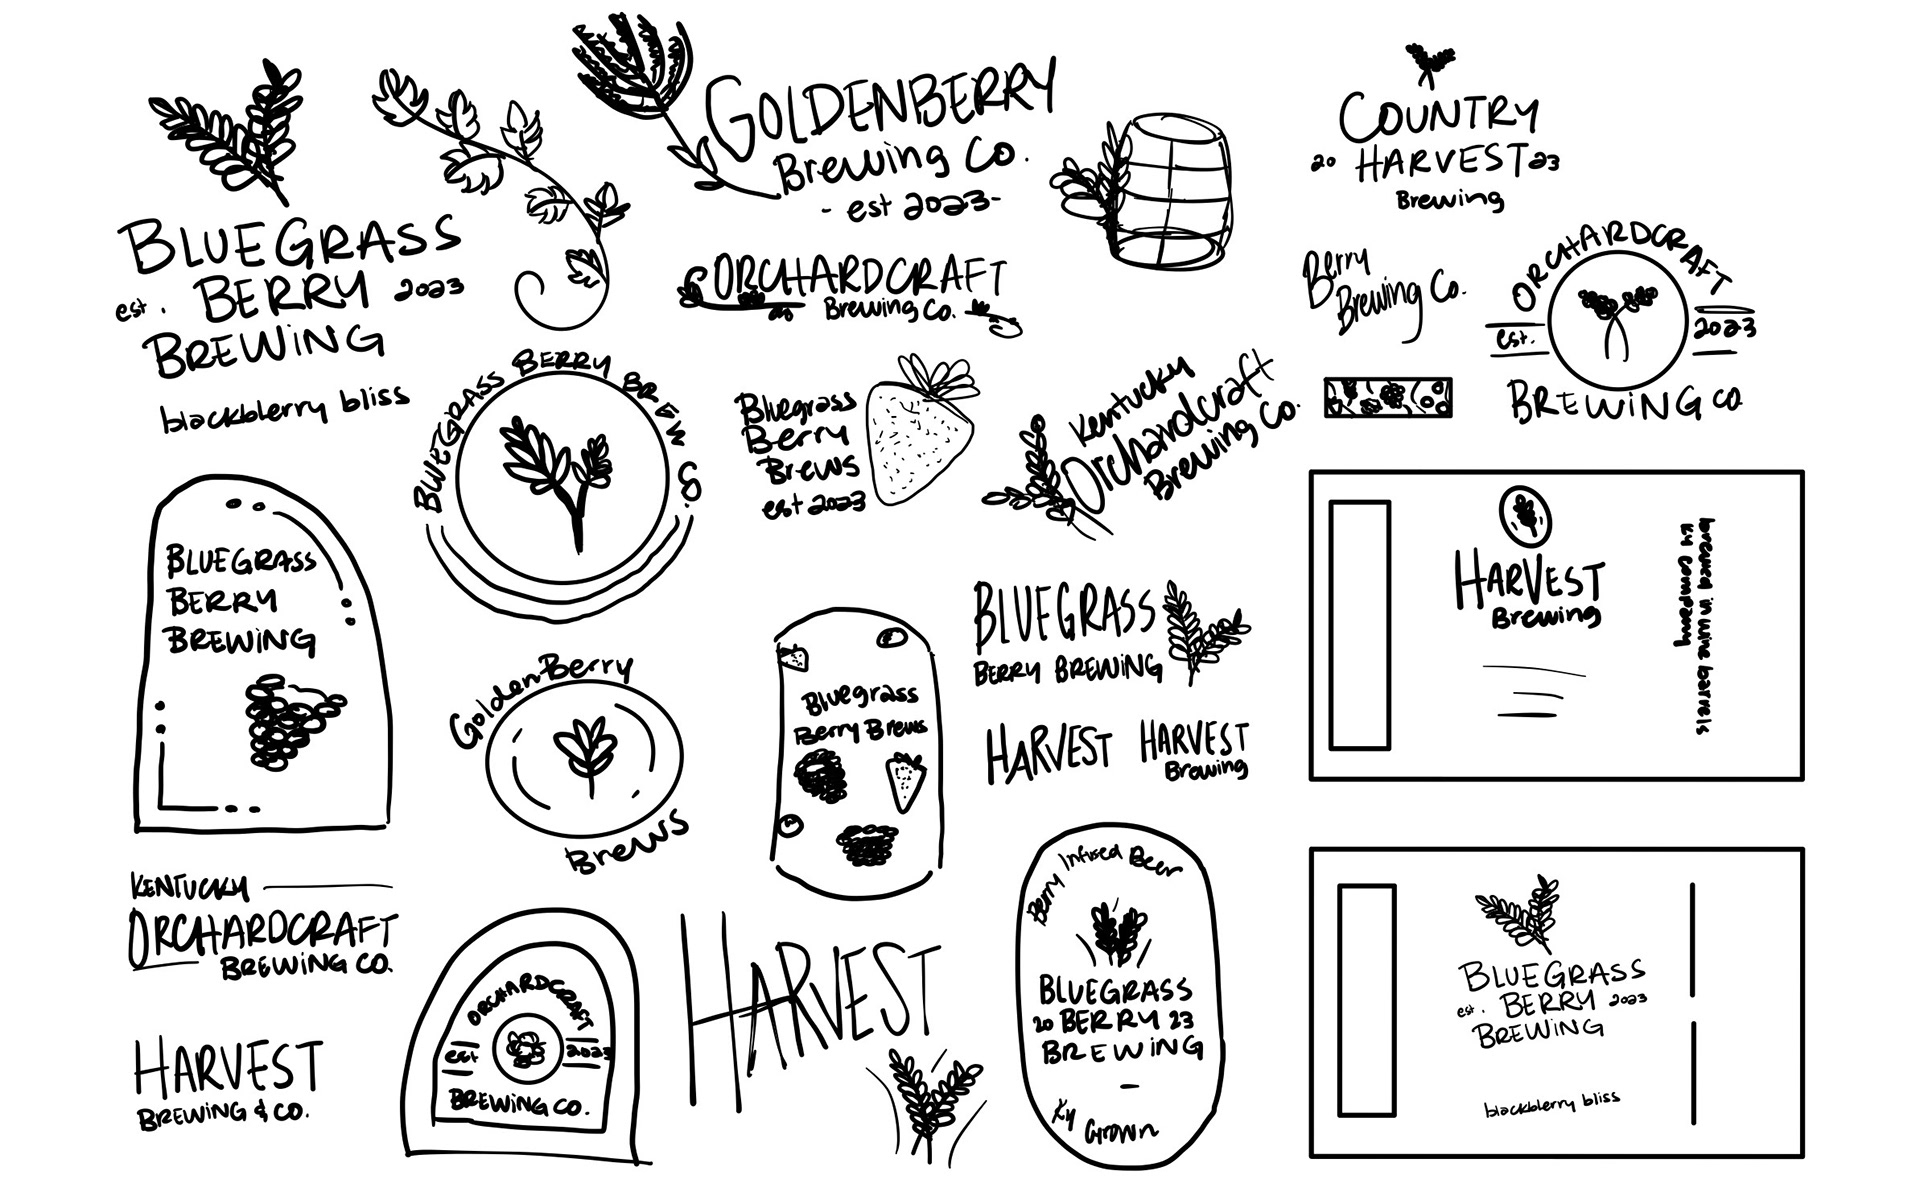 BLUEGRASS
est. BERRY 2023
BREWING
blackblerry bliss
GOLDENBERRY
Brewing Co.
- est 2023-
ORCHARDCRAFT
Brewing Co.
COUNTRY
20 HARVEST 23
Brewing
Berry
Brewing Co.
ORCHARDCRAFT
est. 2023
BREWING CO
BLUEGRASS BERRY BREW CO.
Bluegrass
Berry
Brews
est 2023
Kentucky
Orchardcraft
Brewing Co.
BLUEGRASS
BERRY
BREWING
Golden-Berry
Brews
Bluegrass
Berry Brews
BLUEGRASS
BERRY BREWING
HARVEST
HARVEST
Brewing
HARVEST
Brewing
brewed in wine barrels
KY company
KENTUCKY
ORCHARDCRAFT
BREWING CO.
HARVEST
BREWING & CO.
ORCHARDCRAFT
est 2023
BREWING CO.
HARVEST
Berry Infused Beer
BLUEGRASS
20 BERRY 23
BREWING
Ky Grown
BLUEGRASS
est. BERRY 2023
BREWING
blackblerry bliss